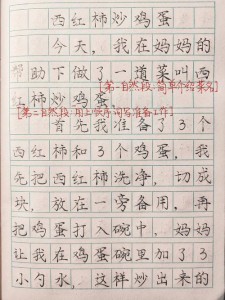 西红柿炒鸡蛋
今天，我在妈妈的
帮助下做了一道菜叫西
红柿炒鸡蛋，
[第一自然段:简单介绍菜名]
[第二自然段:用上顺序词写准备工作]
首先我准备了3个
西红柿和3个鸡蛋，我
先把西红柿洗净，切成
块，放在一旁备用，再
把鸡蛋打入碗中，妈妈
让我在鸡蛋碗里加了3
小勺水，这样炒出来的